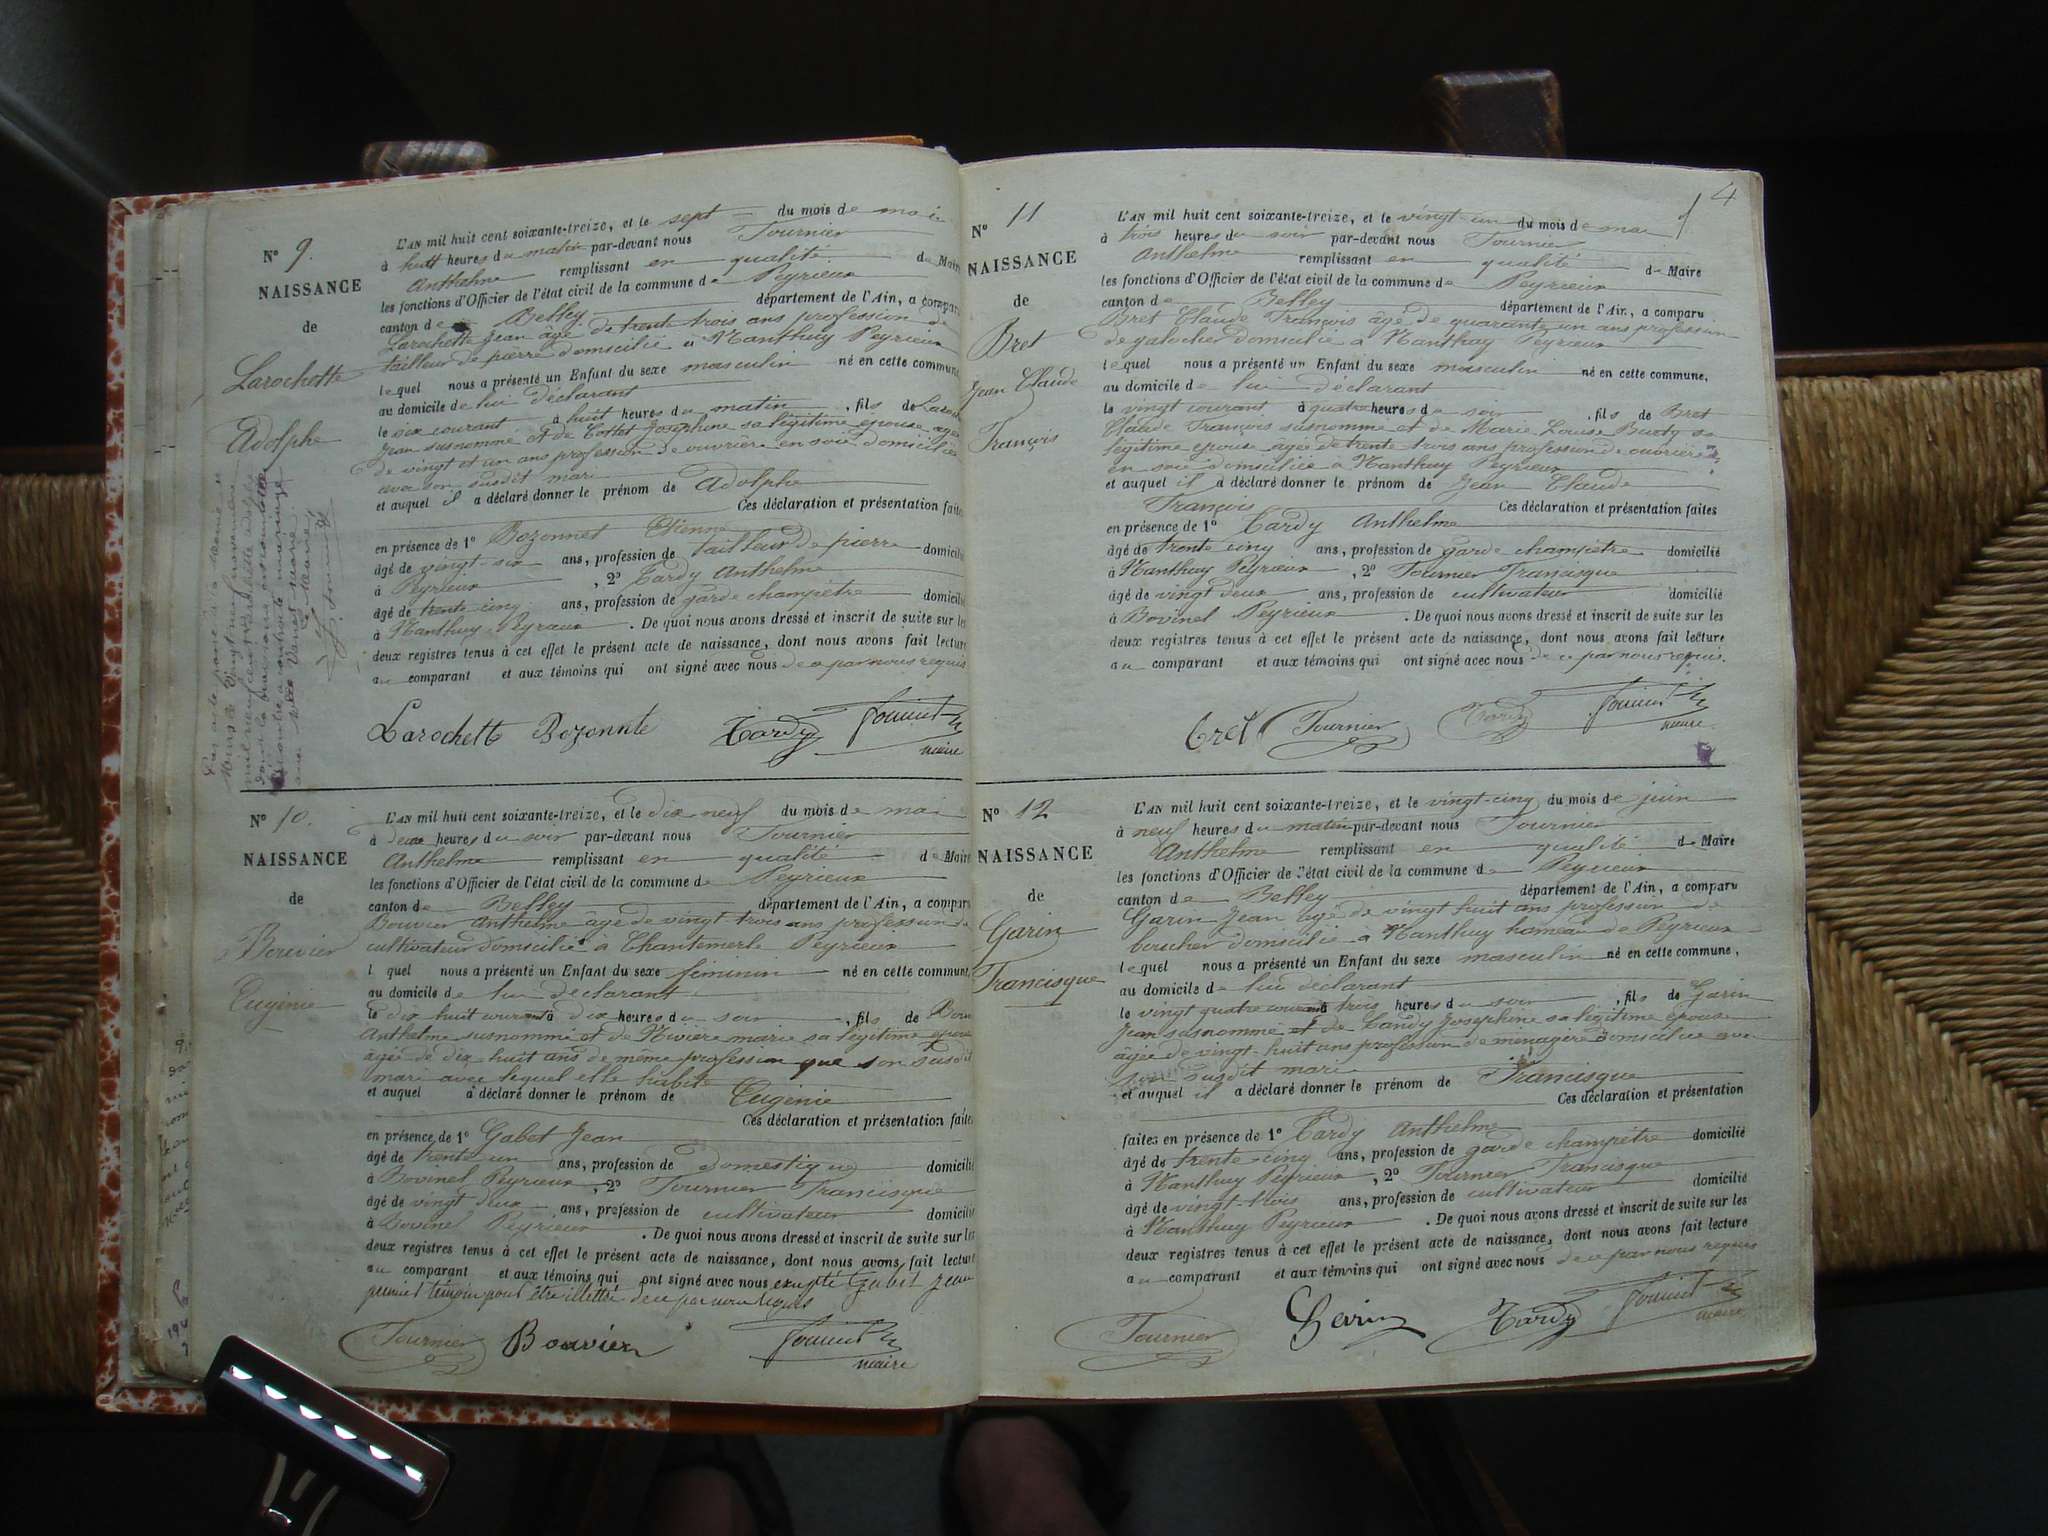 4
N° 9.
NAISSANCE
de
Larochette
Adolphe
L'AN mil huit cent soixante-treize, et le sept du mois de mai
à huit heures du matin par-devant nous Tournier
Anthelme remplissant en qualité de Maire
les fonctions d'Officier de l'état civil de la commune de Peyrieux
canton de Belley département de l'Ain, a comparu
Larochette Jean âgé de trente trois ans profession de
tailleur de pierre domicilié à Nanthuy Peyrieux
lequel nous a présenté un Enfant du sexe masculin né en cette commune,
au domicile de lui déclarant
le six courant à huit heures du matin, fils de
Jean susnommé et de Cottet Josephine sa légitime épouse agée
de vingt et un ans profession de ouvrière en soie domiciliée
avec son susdit mari
et auquel il a déclaré donner le prénom de Adolphe
Ces déclaration et présentation faites
en présence de 1° Bozonnet Etienne
âgé de vingt-six ans, profession de tailleur de pierre domicilié
à Peyrieux, 2° Tardy Anthelme
âgé de trente cinq ans, profession de garde champêtre domicilié
à Nanthuy Peyrieux. De quoi nous avons dressé et inscrit de suite sur les
deux registres tenus à cet effet le présent acte de naissance, dont nous avons fait lecture
au comparant et aux témoins qui ont signé avec nous de ce par nous requis
Larochette Bozonnte Tardy Tournier
maire
N° 10.
NAISSANCE
de
Bouvier
Eugénie
L'AN mil huit cent soixante-treize, et le dix neuf du mois de mai
à deux heures du soir par-devant nous Tournier
Anthelme remplissant en qualité de Maire
les fonctions d'Officier de l'état civil de la commune de Peyrieux
canton de Belley département de l'Ain, a comparu
Bouvier Anthelme âgé de vingt trois ans profession de
cultivateur domicilié à Chantemerle Peyrieux
l quel nous a présenté un Enfant du sexe féminin né en cette commune,
au domicile de lui déclarant
le dix huit courant à dix heures du soir, fils de
Anthelme susnommé et de Rivière marie sa légitime épouse
âgée de dix huit ans de même profession que son susdit
mari avec lequel elle habite
et auquel a déclaré donner le prénom de Eugénie
Ces déclaration et présentation faites
en présence de 1° Gabet Jean
âgé de trente un ans, profession de domestique domicilié
à Bovinel Peyrieux, 2° Tournier Francisque
âgé de vingt deux ans, profession de cultivateur domicilié
à Bovinel Peyrieux. De quoi nous avons dressé et inscrit de suite sur les
deux registres tenus à cet effet le présent acte de naissance, dont nous avons fait lecture
au comparant et aux témoins qui ont signé avec nous excepté Gabet Jean
premier témoin pour être illettré de ce par nous requis
Tournier Bouvier Tournier
maire
N° 11
NAISSANCE
de
Bret
Jean Claude
François
L'AN mil huit cent soixante-treize, et le vingt-un du mois de mai
à trois heures du soir par-devant nous Tournier
Anthelme remplissant en qualité de Maire
les fonctions d'Officier de l'état civil de la commune de Peyrieux
canton de Belley département de l'Ain, a comparu
Bret Claude François âgé de quarante un ans profession
de galocher domicilié à Nanthuy Peyrieux
lequel nous a présenté un Enfant du sexe masculin né en cette commune,
au domicile de lui déclarant
le vingt courant à quatre heures du soir, fils de Bret
Claude François susnommé et de Marie Louise sa
légitime épouse âgée de trente trois ans profession de ouvrière
en soie domiciliée à Nanthuy Peyrieux
et auquel il a déclaré donner le prénom de Jean Claude
François Ces déclaration et présentation faites
en présence de 1° Tardy Anthelme
âgé de trente cinq ans, profession de garde champêtre domicilié
à Nanthuy Peyrieux, 2° Tournier Francisque
âgé de vingt deux ans, profession de cultivateur domicilié
à Bovinel Peyrieux. De quoi nous avons dressé et inscrit de suite sur les
deux registres tenus à cet effet le présent acte de naissance, dont nous avons fait lecture
au comparant et aux témoins qui ont signé avec nous de ce par nous requis.
Bret Tournier Tardy Tournier
maire
N° 12
NAISSANCE
de
Garin
Francisque
L'AN mil huit cent soixante-treize, et le vingt-cinq du mois de juin
à neuf heures du matin par-devant nous Tournier
Anthelme remplissant en qualité de Maire
les fonctions d'Officier de l'état civil de la commune de Peyrieux
canton de Belley département de l'Ain, a comparu
Garin Jean âgé de vingt huit ans profession de
boucher domicilié à Nanthuy hameau de Peyrieux
lequel nous a présenté un Enfant du sexe masculin né en cette commune,
au domicile de lui déclarant
le vingt quatre courant à trois heures du soir, fils de Garin
Jean susnommé et de Tardy Josephine sa légitime épouse
âgée de vingt-huit ans profession de ménagère domiciliée avec
son susdit mari
et auquel il a déclaré donner le prénom de Francisque
Ces déclaration et présentation
faites en présence de 1° Tardy Anthelme
âgé de trente cinq ans, profession de garde champêtre domicilié
à Nanthuy Peyrieux, 2° Tournier Francisque
âgé de vingt-trois ans, profession de cultivateur domicilié
à Nanthuy Peyrieux. De quoi nous avons dressé et inscrit de suite sur les
deux registres tenus à cet effet le présent acte de naissance, dont nous avons fait lecture
au comparant et aux témoins qui ont signé avec nous de ce par nous requis
Tournier Tardy Tournier
maire